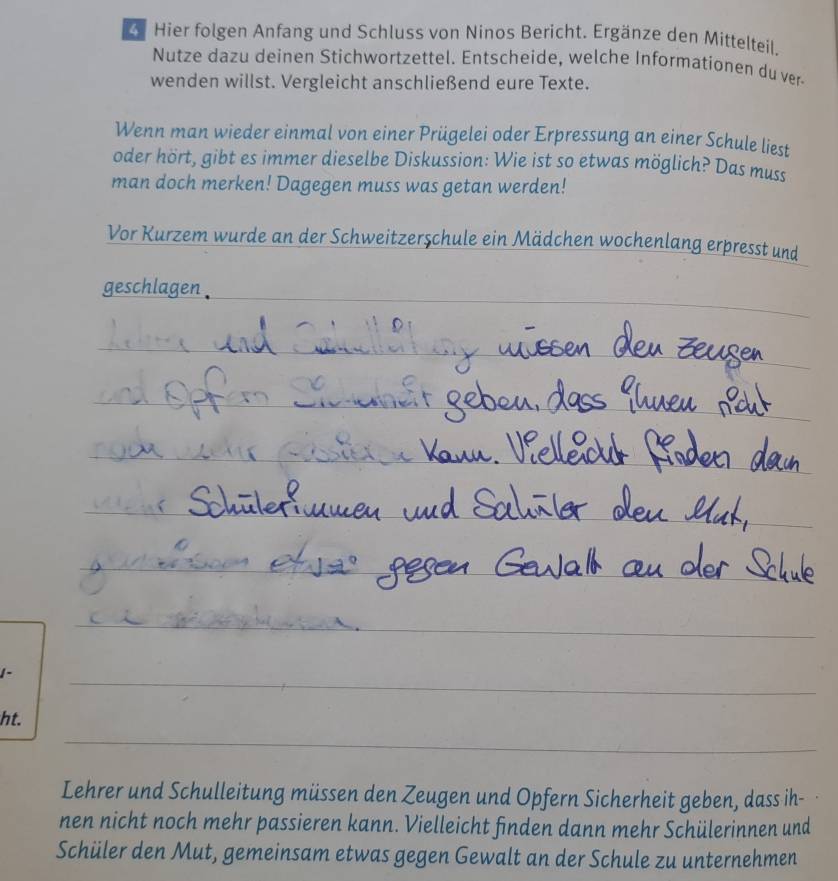 4 Hier folgen Anfang und Schluss von Ninos Bericht. Ergänze den Mittelteil.
Nutze dazu deinen Stichwortzettel. Entscheide, welche Informationen du ver-
wenden willst. Vergleicht anschließend eure Texte.
Wenn man wieder einmal von einer Prügelei oder Erpressung an einer Schule liest
oder hört, gibt es immer dieselbe Diskussion: Wie ist so etwas möglich? Das muss
man doch merken! Dagegen muss was getan werden!
Vor Kurzem wurde an der Schweitzerschule ein Mädchen wochenlang erpresst und
geschlagen.
Lehrer und Schulleitung müssen den Zeugen
und Opfern Sicherheit geben, dass ihnen nicht
noch mehr passieren kann. Vielleicht finden dann
mehr Schülerinnen und Schüler den Mut,
gemeinsam etwas gegen Gewalt an der Schule
zu unternehmen.
r-
ht.
Lehrer und Schulleitung müssen den Zeugen und Opfern Sicherheit geben, dass ih-
nen nicht noch mehr passieren kann. Vielleicht finden dann mehr Schülerinnen und
Schüler den Mut, gemeinsam etwas gegen Gewalt an der Schule zu unternehmen